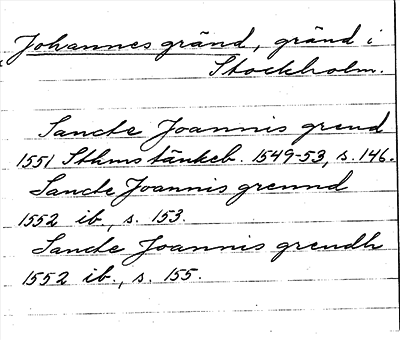 Johannesgränd, gränd i
Stockholm.
Sancte Joannis grend
1551 Sthms tänkeb. 1549-53, s. 146.
Sancte Joannis grennd
1552 ib., s. 153.
Sancte Joannis grendh
1552 ib., s. 155.